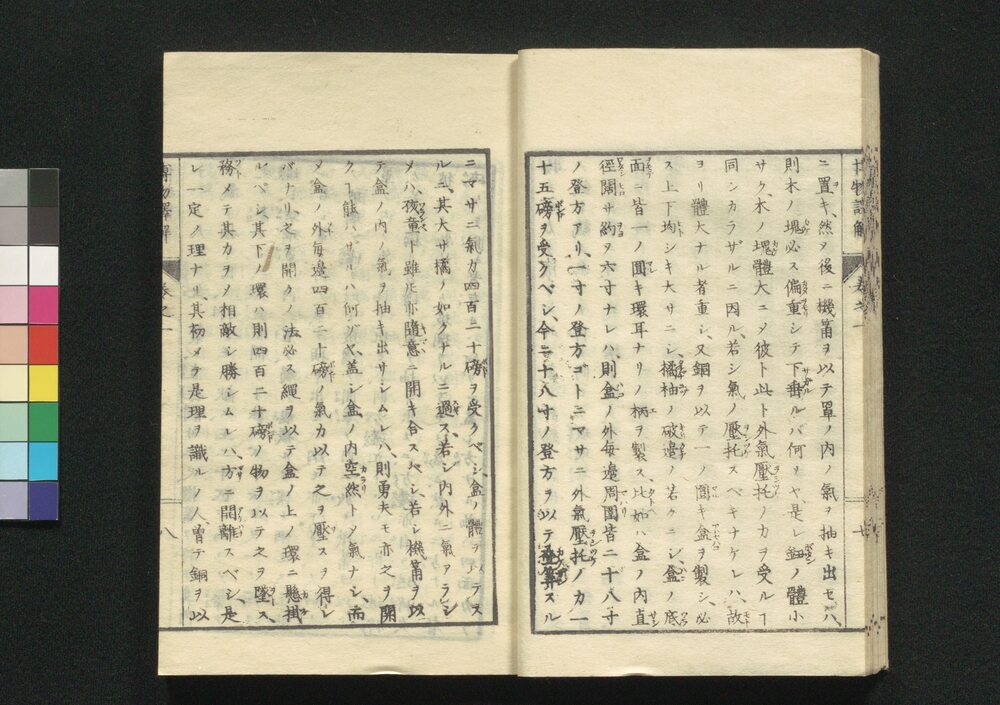 博物譯解 卷之一
ニ置キ、然ヲ後ニ機筩ヲ以テ罩ノ内ノ氣ヲ抽キ出セハ、
則木ノ塊必ス偏重シテ下垂ルバ何ソヤ、是レ鉛ノ體小
サク、木ノ塊體大ニメ彼ト此ト外氣壓托ノカヲ受ルヿ
同ンカラザルニ因ル、若シ氣ノ壓托スベキナケレハ、故
ヨリ體大ナル者重シ、又銅ヲ以テ一ノ圓キ盒ヲ製シ、必
ス上下均シキ大サニシ、橘柚ノ破邉ノ若クニシ、盒ノ底
面ニ皆一ノ圓キ環耳ナリノ柄ヲ製ス、比如ハ盒ノ内直
徑闊サ約ヲ六寸ナレハ、則盒ノ外毎邉周圍皆二十八寸
ノ登方アリ、一寸ノ登方ゴトニマサニ外氣壓托ノカ一
十五磅ヲ受クベシ、今二十八寸ノ登方ヲ以テ登算スル
ニマサニ氣カ四百二十磅ヲ受クベシ、盒ノ體ヲ以テス
ルニ、其大サ橘ノ如クナルニ過ス、若シ内外ニ氣アラシ
メハ、孩童ト雖𪜈亦隨意ニ開キ合スベシ、若シ機筩ヲ以
テ盒ノ内ノ氣ヲ抽キ出サシムレハ、則勇夫モ亦之ヲ開
クヿ能ハザルハ何ゾヤ、蓋シ盒ノ内空然トメ氣ナシ、而
メ盒ノ外毎邉四百二十磅ノ氣カ以テ之ヲ壓スヲ得レ
バナリ、之ヲ開クノ法必ス繩ヲ以テ盒ノ上ノ環ニ懸掛
ルベシ、其下ノ環ハ則四百二十磅ノ物ヲ以テ之ヲ墜ス、
務メテ其カヲメ相敵シ勝シムレハ、方テ開離スベシ、是
レ一定ノ理ナリ、其初メテ是理ヲ識ルノ人、曾テ銅ヲ以
博物譯解 卷之一 八